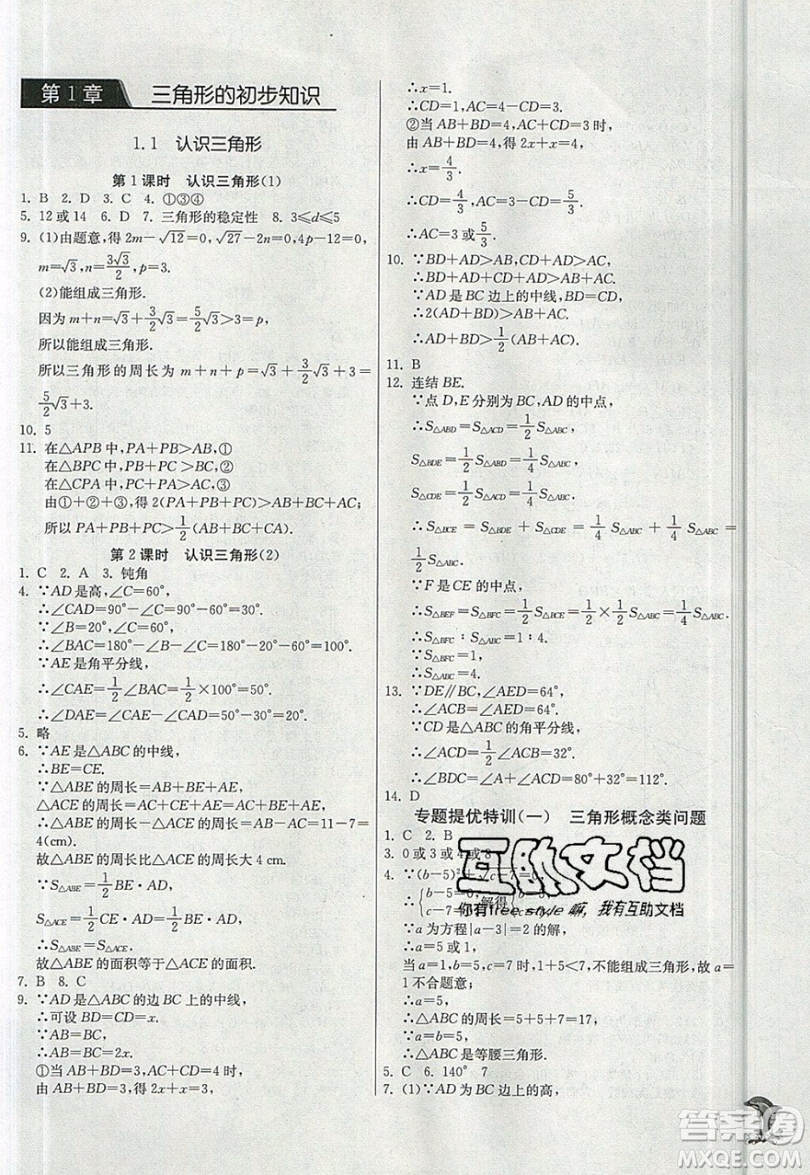 第1章 三角形的初步知识
1.1 认识三角形
第1课时 认识三角形(1)
1. B 2. D 3. C 4. ①③④
5. 12或14 6. D 7. 三角形的稳定性 8. 3≤d≤5
9. (1)由题意,得 2m-√12=0,√27-2n=0,4p-12=0,
m=√3,n=3√3/2,p=3.
(2)能组成三角形.
因为 m+n=√3+3/2√3=5/2√3>3=p,
所以能组成三角形.
所以三角形的周长为 m+n+p=√3+3/2√3+3=
5/2√3+3.
10. 5
11. 在△APB 中,PA+PB>AB,①
在△BPC 中,PB+PC>BC,②
在△CPA 中,PA+PC>AC,③
由①+②+③,得 2(PA+PB+PC)>AB+BC+AC;
所以 PA+PB+PC>1/2(AB+BC+AC).
第2课时 认识三角形(2)
1. C 2. A 3. 钝角
4. ∵AD 是高,∠C=60°,
∴∠CAD=90°-∠C=90°-60°=30°.
∵∠B=20°,∠C=60°,
∴∠BAC=180°-∠B-∠C=180°-20°-60°=100°.
∵AE 是角平分线,
∴∠CAE=1/2∠BAC=1/2×100°=50°.
∴∠DAE=∠CAE-∠CAD=50°-30°=20°.
5. 略
6. ∵AE 是△ABC 的中线,
∴BE=CE.
∵△ABE 的周长=AB+BE+AE,
△ACE 的周长=AC+CE+AE,
∴△ABE 的周长-△ACE 的周长=AB-AC=11-7=
4(cm).
故△ABE 的周长比△ACE 的周长大 4 cm.
∵S△ABE=1/2BE·AD,
S△ACE=1/2CE·AD,
∴S△ABE=S△ACE.
故△ABE 的面积等于△ACE 的面积.
7. B 8. C
9. ∵AD 是△ABC 的边 BC 上的中线,
∴可设 BD=CD=x.
∵AB=BC,
∴AB=BC=2x.
①当 AB+BD=3,AC+CD=4 时,
由 AB+BD=3,得 2x+x=3,
∴x=1.
∴CD=1,AC=4-CD=3.
②当 AB+BD=4,AC+CD=3 时,
由 AB+BD=4,得 2x+x=4,
∴x=4/3.
∴CD=4/3,AC=3-CD=5/3.
∴AC=3 或 5/3.
10. ∵BD+AD>AB,CD+AD>AC,
∴BD+AD+CD+AD>AB+AC.
∵AD 是 BC 边上的中线,BD=CD,
∴2(AD+BD)>AB+AC.
∴AD+BD>1/2(AB+AC).
11. B
12. 连结 BE.
∵点 D,E 分别为 BC,AD 的中点,
∴S△ABD=S△ACD=1/2S△ABC,
S△BDE=1/2S△ABD=1/4S△ABC,
S△CDE=1/2S△ACD=1/4S△ABC.
∴S△BCE=S△BDE+S△CDE=1/4S△ABC+1/4S△ABC=
1/2S△ABC.
∵F 是 CE 的中点,
∴S△BEF=S△BFC=1/2S△BCE=1/2×1/2S△ABC=1/4S△ABC.
∴S△BFC∶S△ABC=1∶4.
∵S△BFC=1,
∴S△ABC=4.
13. ∵DE∥BC,∠AED=64°,
∴∠ACB=∠AED=64°.
∵CD 是△ABC 的角平分线,
∴∠ACD=1/2∠ACB=32°.
∴∠BDC=∠A+∠ACD=92°.
14. D
专题提优特训(一) 三角形概念类问题
1. C 2. B
3. 0或3或4或8
4. ∵(b-5)²+
∴{b-5=0, 解得{
c-7=0,
∵a 为方程|a-3|=2 的解,
∴a=5 或 1.
当 a=1,b=5,c=7 时,1+5<7,不能组成三角形,故 a=
1 不合题意.
∴a=5.
∴△ABC 的周长=5+5+7=17.
∵a=b=5,
∴△ABC 是等腰三角形.
5. C 6. 140° 7
7. (1)∵AD 是 BC 边上的高,
互助文档
你有free style嘛,我有互助文档
答案圈
MXQE.COM